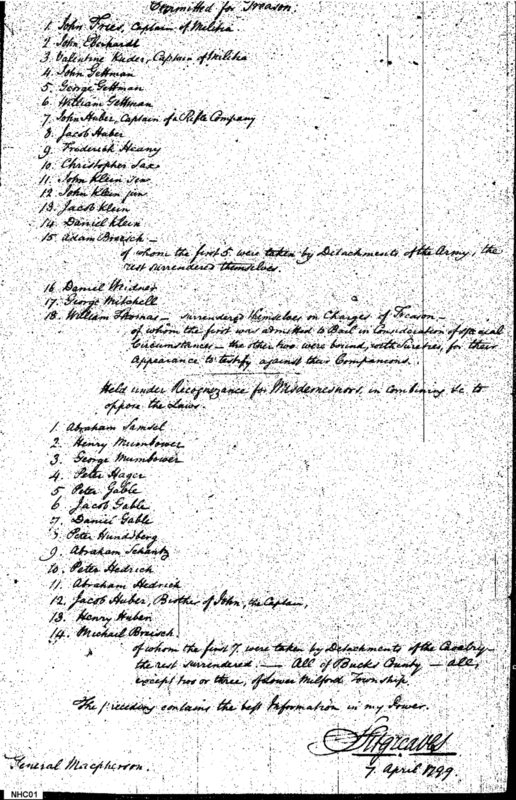 Committed for Treason:
1. John Fries, Captain of Militia
2. John Eberhardt
3. Valentine Kuder, Captain of Militia
4. John Gettman
5. George Gettman
6. William Gettman
7. John Huber, Captain of a Rifle Company
8. Jacob Huber
9. Frederick Heany
10. Christopher Sax
11. John Klein sen
12. John Klein jun
13. Jacob Klein
14. Daniel Klein
15. Adam Breisch —
of whom the first 5. were taken by Detachments of the Army, the
rest surrendered themselves.
16. Daniel Weidner
17. George Mitchell
18. William Thomas — surrendered themselves on Charges of Treason —
of whom the first was admitted to Bail in Consideration of special
Circumstances — the other two were bound, with Sureties, for their
Appearance to testify against their Companions.
Held under Recognizance for Misdemesnors, in combining &c. to
oppose the Laws.
1. Abraham Samsel
2. Henry Mumbower
3. George Mumbower
4. Peter Hager
5. Peter Gable
6. Jacob Gable
7. Daniel Gable
8. Peter Hundsberg
9. Abraham Schantz
10. Peter Hedrich
11. Abraham Hedrich
12. Jacob Huber, Brother of John, the Captain,
13. Henry Huber
14. Michael Breisch.
of whom the first 7. were taken by Detachments of the Cavalry —
the rest surrendered. — All of Bucks County — all,
except two or three, of Lower Milford Township.
The preceding contains the best Information in my Power.
Sitgreaves
7. April 1799
General Macpherson.
NHC01